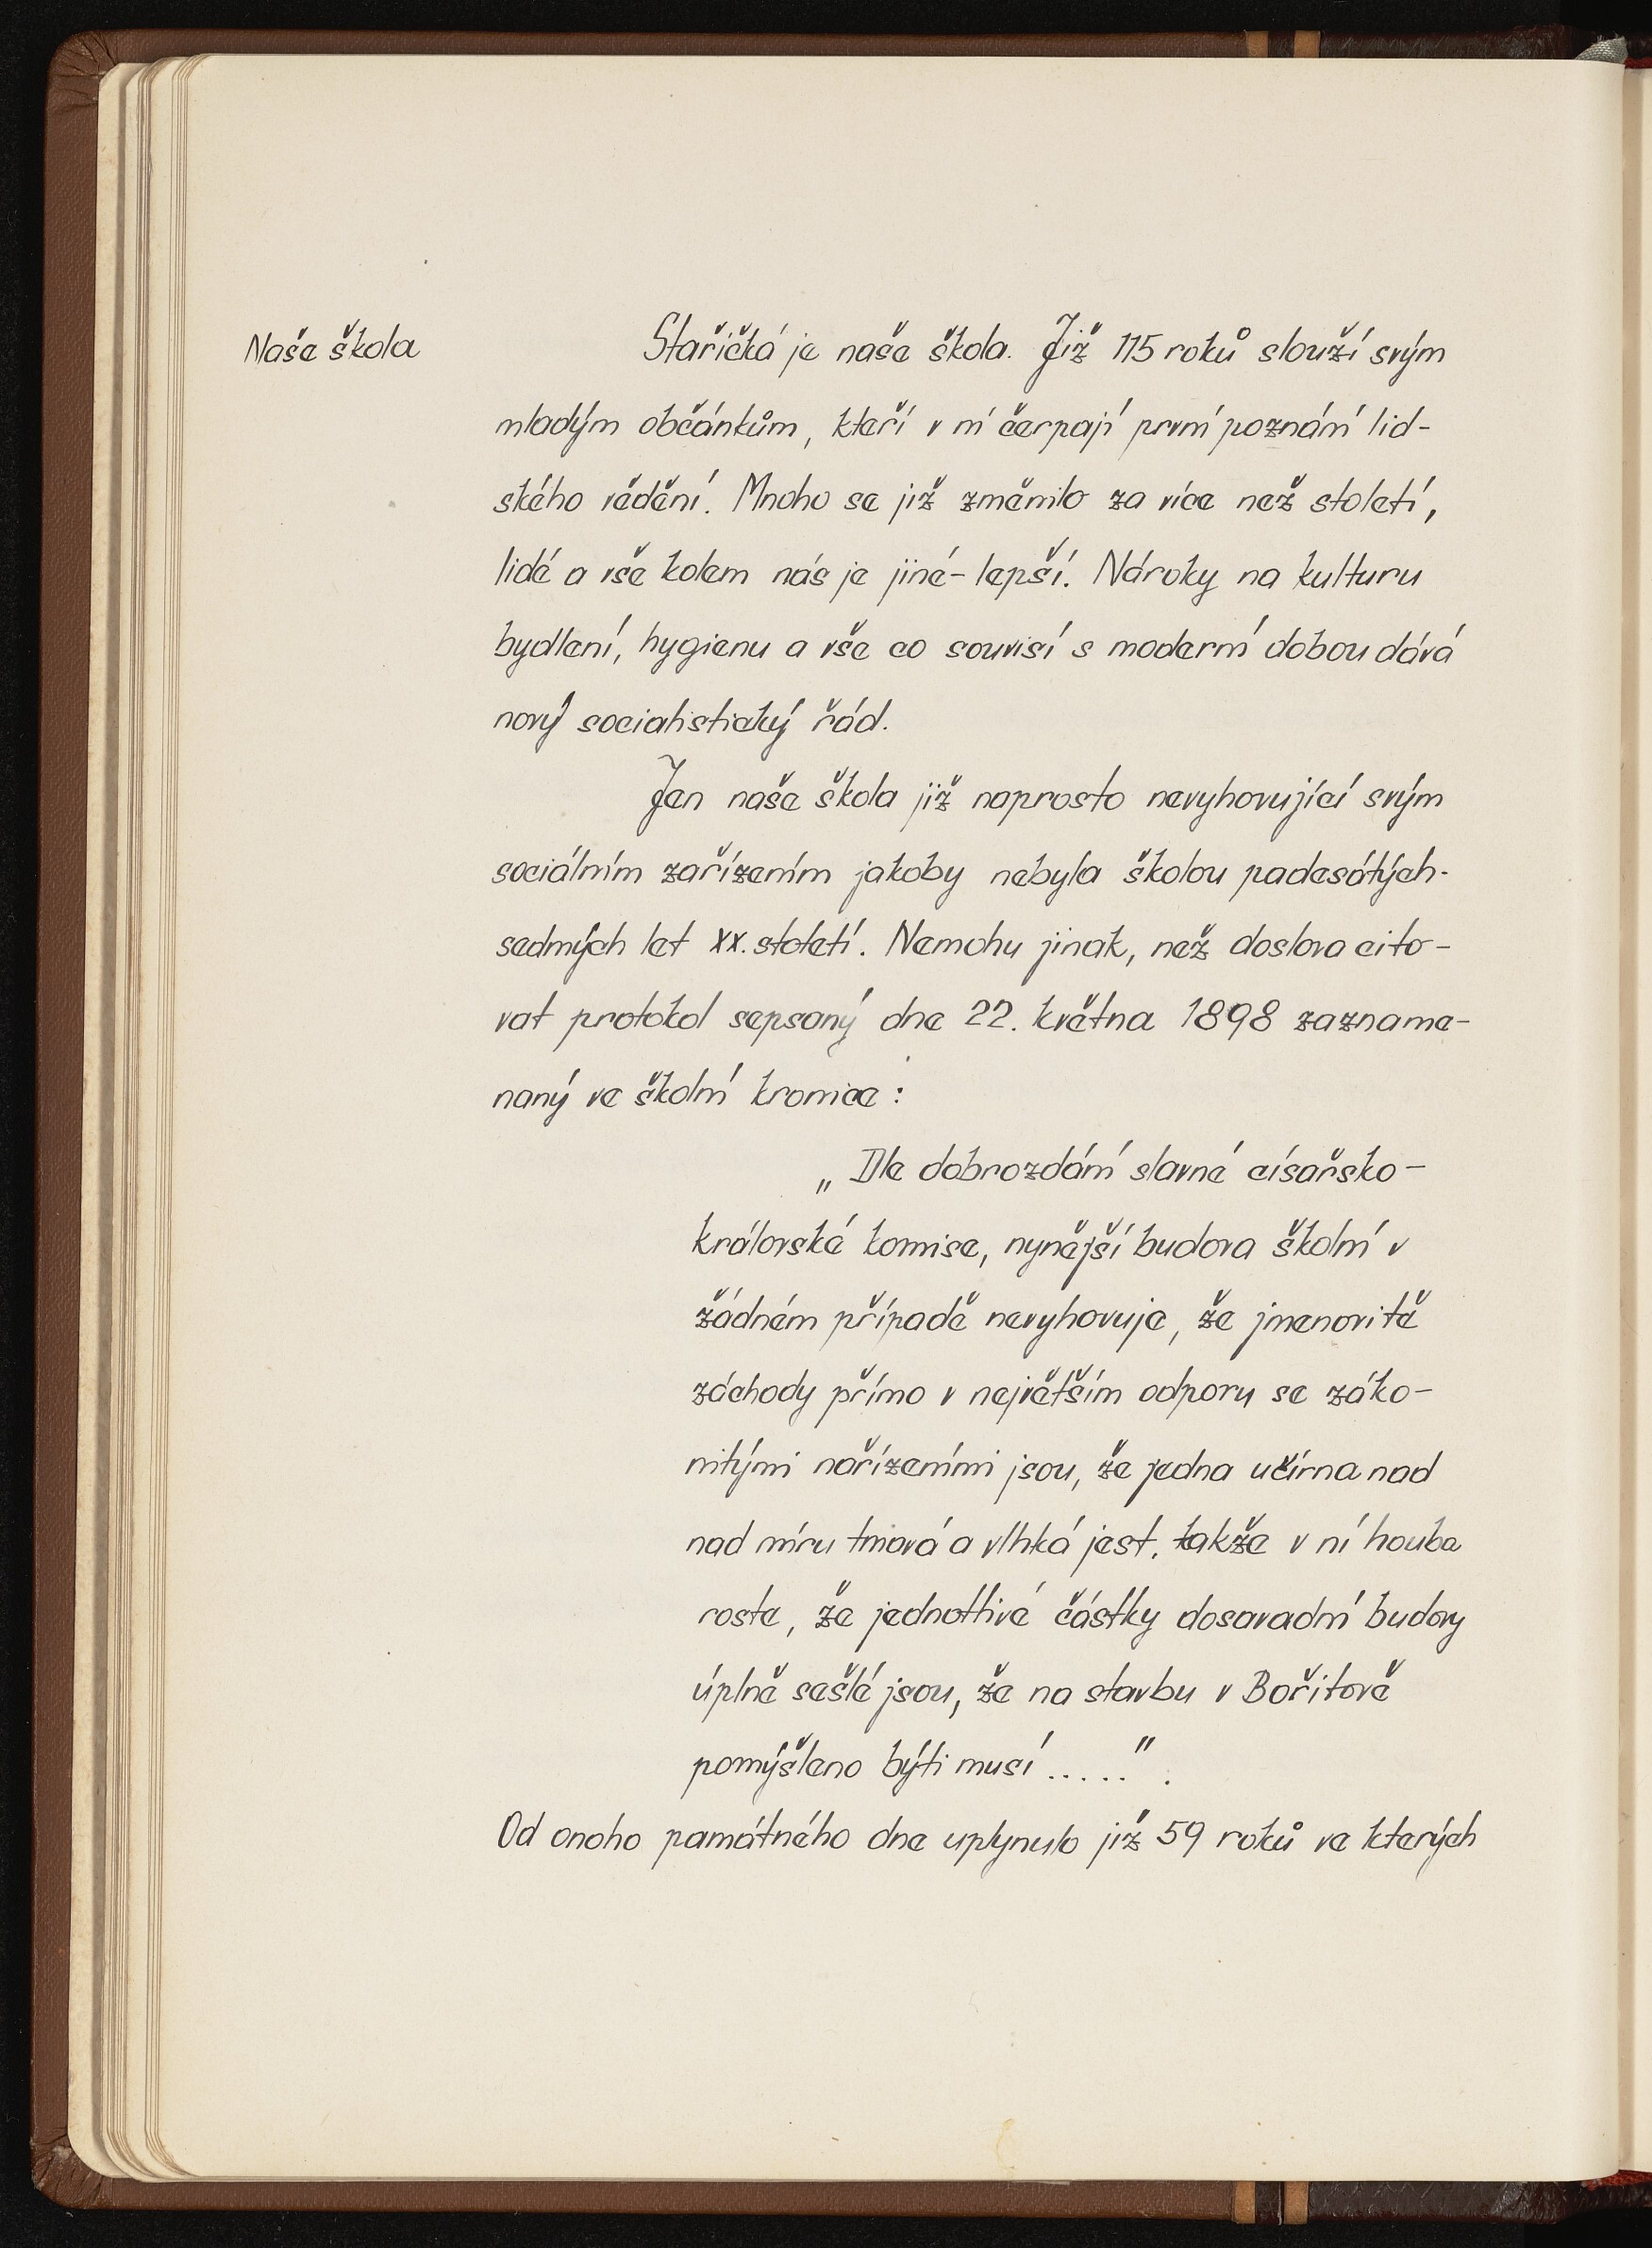 Naše škola
Stařičká je naše škola. Již 115 roků slouží svým
mladým občánkům, kteří v ní čerpají první poznání lid-
ského vědění. Mnoho se již změnilo za více než století,
lidé a vše kolem nás je jiné- lepší. Nároky na kulturu
bydlení, hygienu a vše co souvisí s moderní dobou dává
nový socialistický řád.
Jen naše škola již naprosto nevyhovující svým
sociálním zařízením jakoby nebyla školou padesátých-
sedmých let XX. století. Nemohu jinak, než doslova cito-
vat protokol sepsaný dne 22. května 1898 zazname-
naný ve školní kronice :
„ Dle dobrozdání slavné císařsko-
královské komise, nynější budova školní v
žádném případě nevyhovuje, že jmenovitě
záchody přímo v největším odporu se záko-
nitými nařízeními jsou, že jedna učírna nad
nad míru tmavá a vlhká jest, takže v ní houba
roste, že jednotlivé částky dosavadní budovy
úplně sešlé jsou, že na stavbu v Bořitově
pomýšleno býti musí ..... ".
Od onoho památného dne uplynulo již 59 roků ve kterých